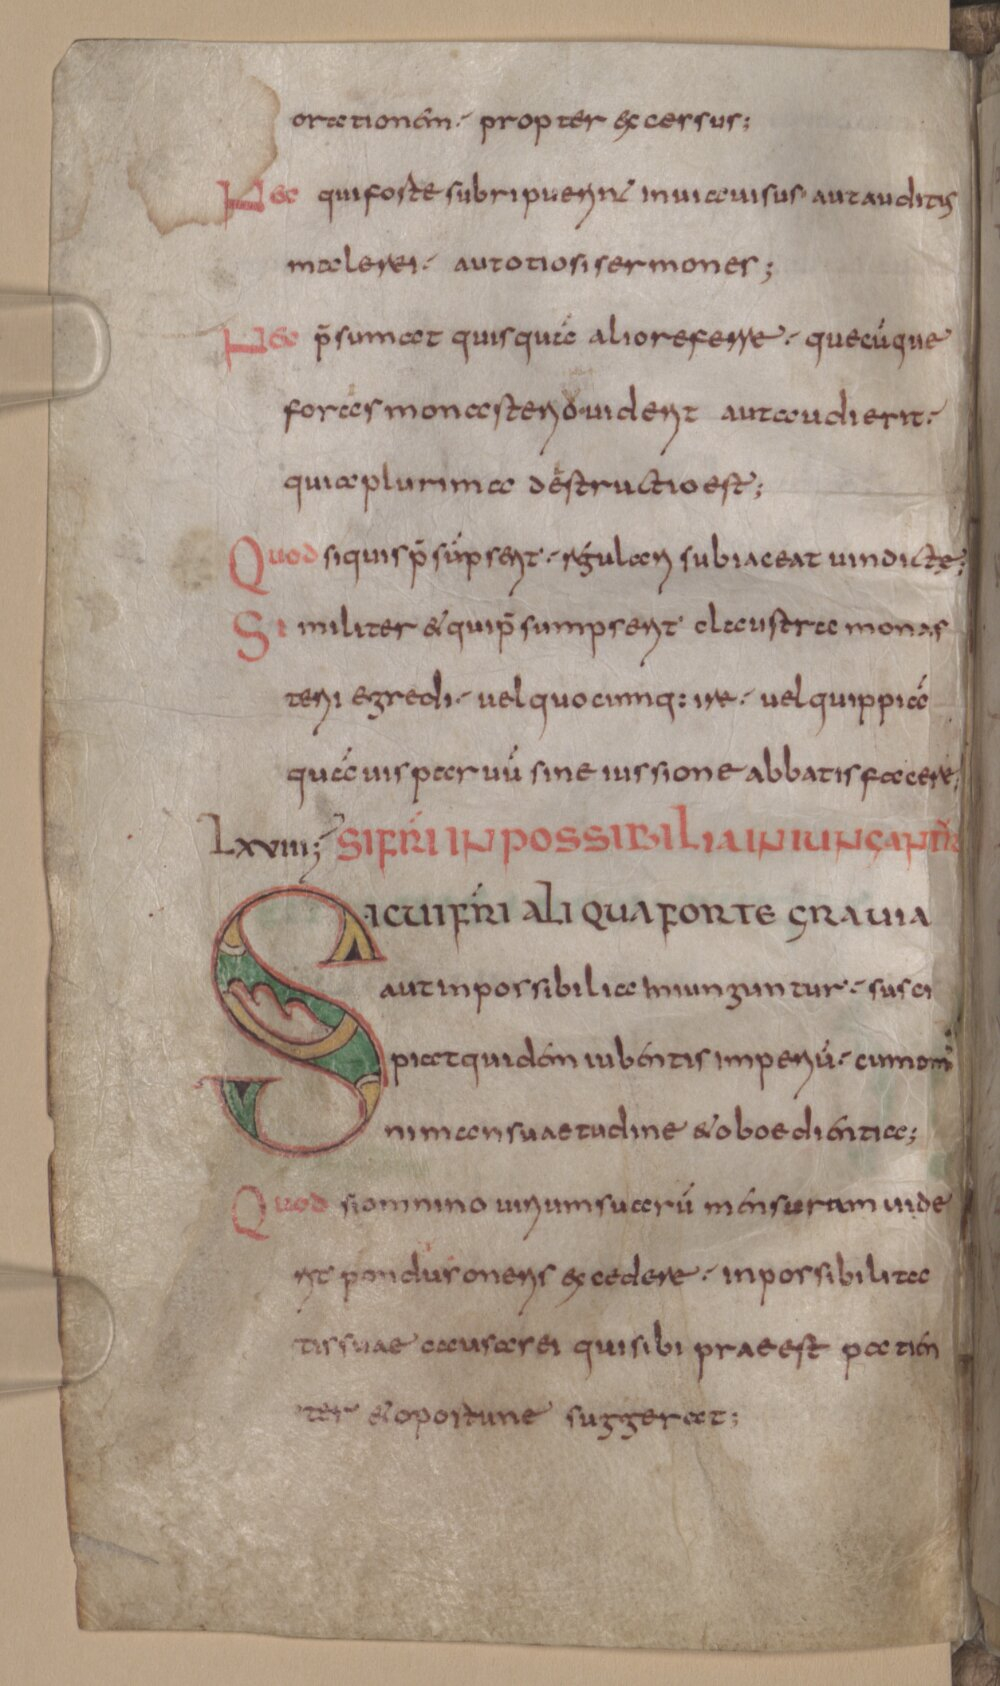 orationem · propter excessus;
Nec qui forte subripuerint in uia uisus aut auditis
male rei · aut otiosi sermones;
Nec p̄sumat quisquā alio referre · quecūque
foras monasteriō uiderit aut audierit ·
quia plurima destructio est;
Quod siquis p̄sūpserit · regulari subiaceat uindictę;
Similiter & qui p̄sumpserit claustra monas
terii egredi · uel quocumq: ire · uel quippiā
quāuis paruū sine iussione abbatis facere;
Lxviii; SI FRĪ INPOSSIBILIA INIUNGANTR̄
SI CUI FRĪ ALIQUA FORTE GRAUIA
aut inpossibilia iniunguntur · susci
piat quidem iubentis imperiū · cum om
ni mansuaetudine & oboedientia;
Quod si omnino uirium suarū mensuram uide
rit pondus oneris excedere · inpossibilita
tis suae causas ei qui sibi praeest patien
ter & oportune suggerat;